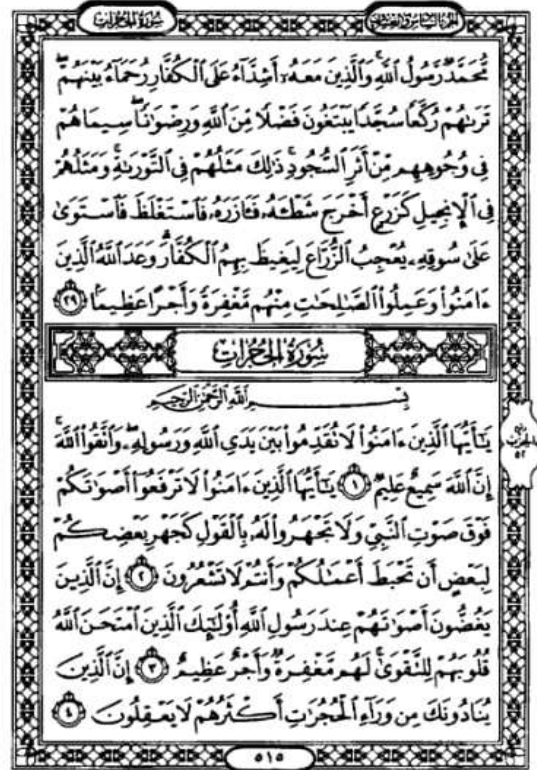 سُورَةُ الحُجُرَاتِ
الجُزْءُ السَّادِسُ وَالعِشْرُونَ
مُّحَمَّدٌ رَّسُولُ ٱللَّهِ وَٱلَّذِينَ مَعَهُۥٓ أَشِدَّآءُ عَلَى ٱلْكُفَّارِ رُحَمَآءُ بَيْنَهُمْ ۖ
تَرَىٰهُمْ رُكَّعًا سُجَّدًا يَبْتَغُونَ فَضْلًا مِّنَ ٱللَّهِ وَرِضْوَٰنًا ۖ سِيمَاهُمْ
فِى وُجُوهِهِم مِّنْ أَثَرِ ٱلسُّجُودِ ۚ ذَٰلِكَ مَثَلُهُمْ فِى ٱلتَّوْرَىٰةِ ۚ وَمَثَلُهُمْ
فِى ٱلْإِنجِيلِ كَزَرْعٍ أَخْرَجَ شَطْـَٔهُۥ فَـَٔازَرَهُۥ فَٱسْتَغْلَظَ فَٱسْتَوَىٰ
عَلَىٰ سُوقِهِۦ يُعْجِبُ ٱلزُّرَّاعَ لِيَغِيظَ بِهِمُ ٱلْكُفَّارَ ۗ وَعَدَ ٱللَّهُ ٱلَّذِينَ
ءَامَنُوا۟ وَعَمِلُوا۟ ٱلصَّٰلِحَٰتِ مِنْهُم مَّغْفِرَةً وَأَجْرًا عَظِيمًۢا ٢٩
سُورَةُ الحُجُرَاتِ
بِسْمِ ٱللَّهِ ٱلرَّحْمَٰنِ ٱلرَّحِيمِ
يَٰٓأَيُّهَا ٱلَّذِينَ ءَامَنُوا۟ لَا تُقَدِّمُوا۟ بَيْنَ يَدَىِ ٱللَّهِ وَرَسُولِهِۦ ۖ وَٱتَّقُوا۟ ٱللَّهَ ۚ
إِنَّ ٱللَّهَ سَمِيعٌ عَلِيمٌ ١ يَٰٓأَيُّهَا ٱلَّذِينَ ءَامَنُوا۟ لَا تَرْفَعُوٓا۟ أَصْوَٰتَكُمْ
فَوْقَ صَوْتِ ٱلنَّبِىِّ وَلَا تَجْهَرُوا۟ لَهُۥ بِٱلْقَوْلِ كَجَهْرِ بَعْضِكُمْ
لِبَعْضٍ أَن تَحْبَطَ أَعْمَٰلُكُمْ وَأَنتُمْ لَا تَشْعُرُونَ ٢ إِنَّ ٱلَّذِينَ
يَغُضُّونَ أَصْوَٰتَهُمْ عِندَ رَسُولِ ٱللَّهِ أُو۟لَٰٓئِكَ ٱلَّذِينَ ٱمْتَحَنَ ٱللَّهُ
قُلُوبَهُمْ لِلتَّقْوَىٰ ۚ لَهُم مَّغْفِرَةٌ وَأَجْرٌ عَظِيمٌ ٣ إِنَّ ٱلَّذِينَ
يُنَادُونَكَ مِن وَرَآءِ ٱلْحُجُرَٰتِ أَكْثَرُهُمْ لَا يَعْقِلُونَ ٤
٥١٥